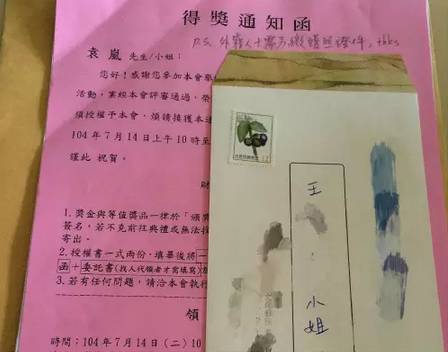 得獎通知函
P.S. 外籍人士需另繳護照證件, thks
袁嵐 先生/小姐：
您好！感謝您參加本會舉
活動，業經本會評審通過，榮
須授權予本會，煩請接獲本通
104年7月14日上午10時至
謹此 祝賀。
財
1.獎金與等值獎品一律於「頒獎
簽名，若不克前往典禮或無法
寄出。
2.授權書一式兩份，填畢後將一
函+委託書(找人代領者才需填寫)
3.若有任何問題，請洽本會執行
領
時間：104年7月14日(二)10
王
小姐